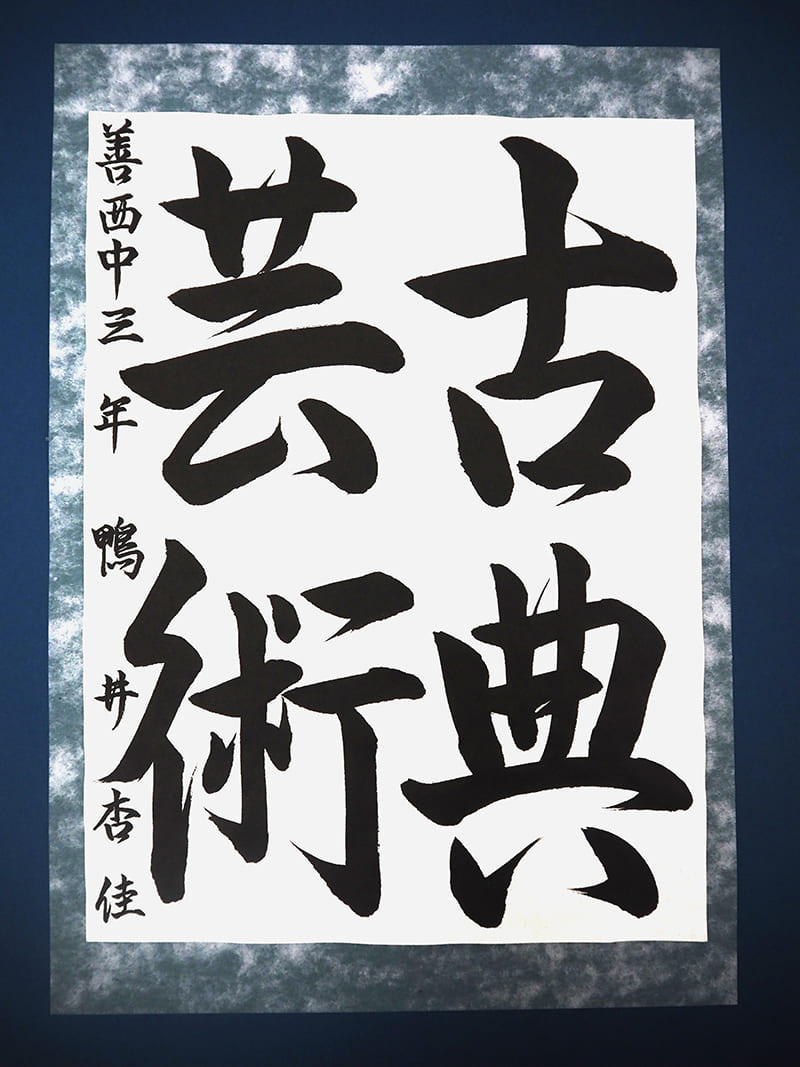 古典
芸術
善西中三年 鴨井杏佳